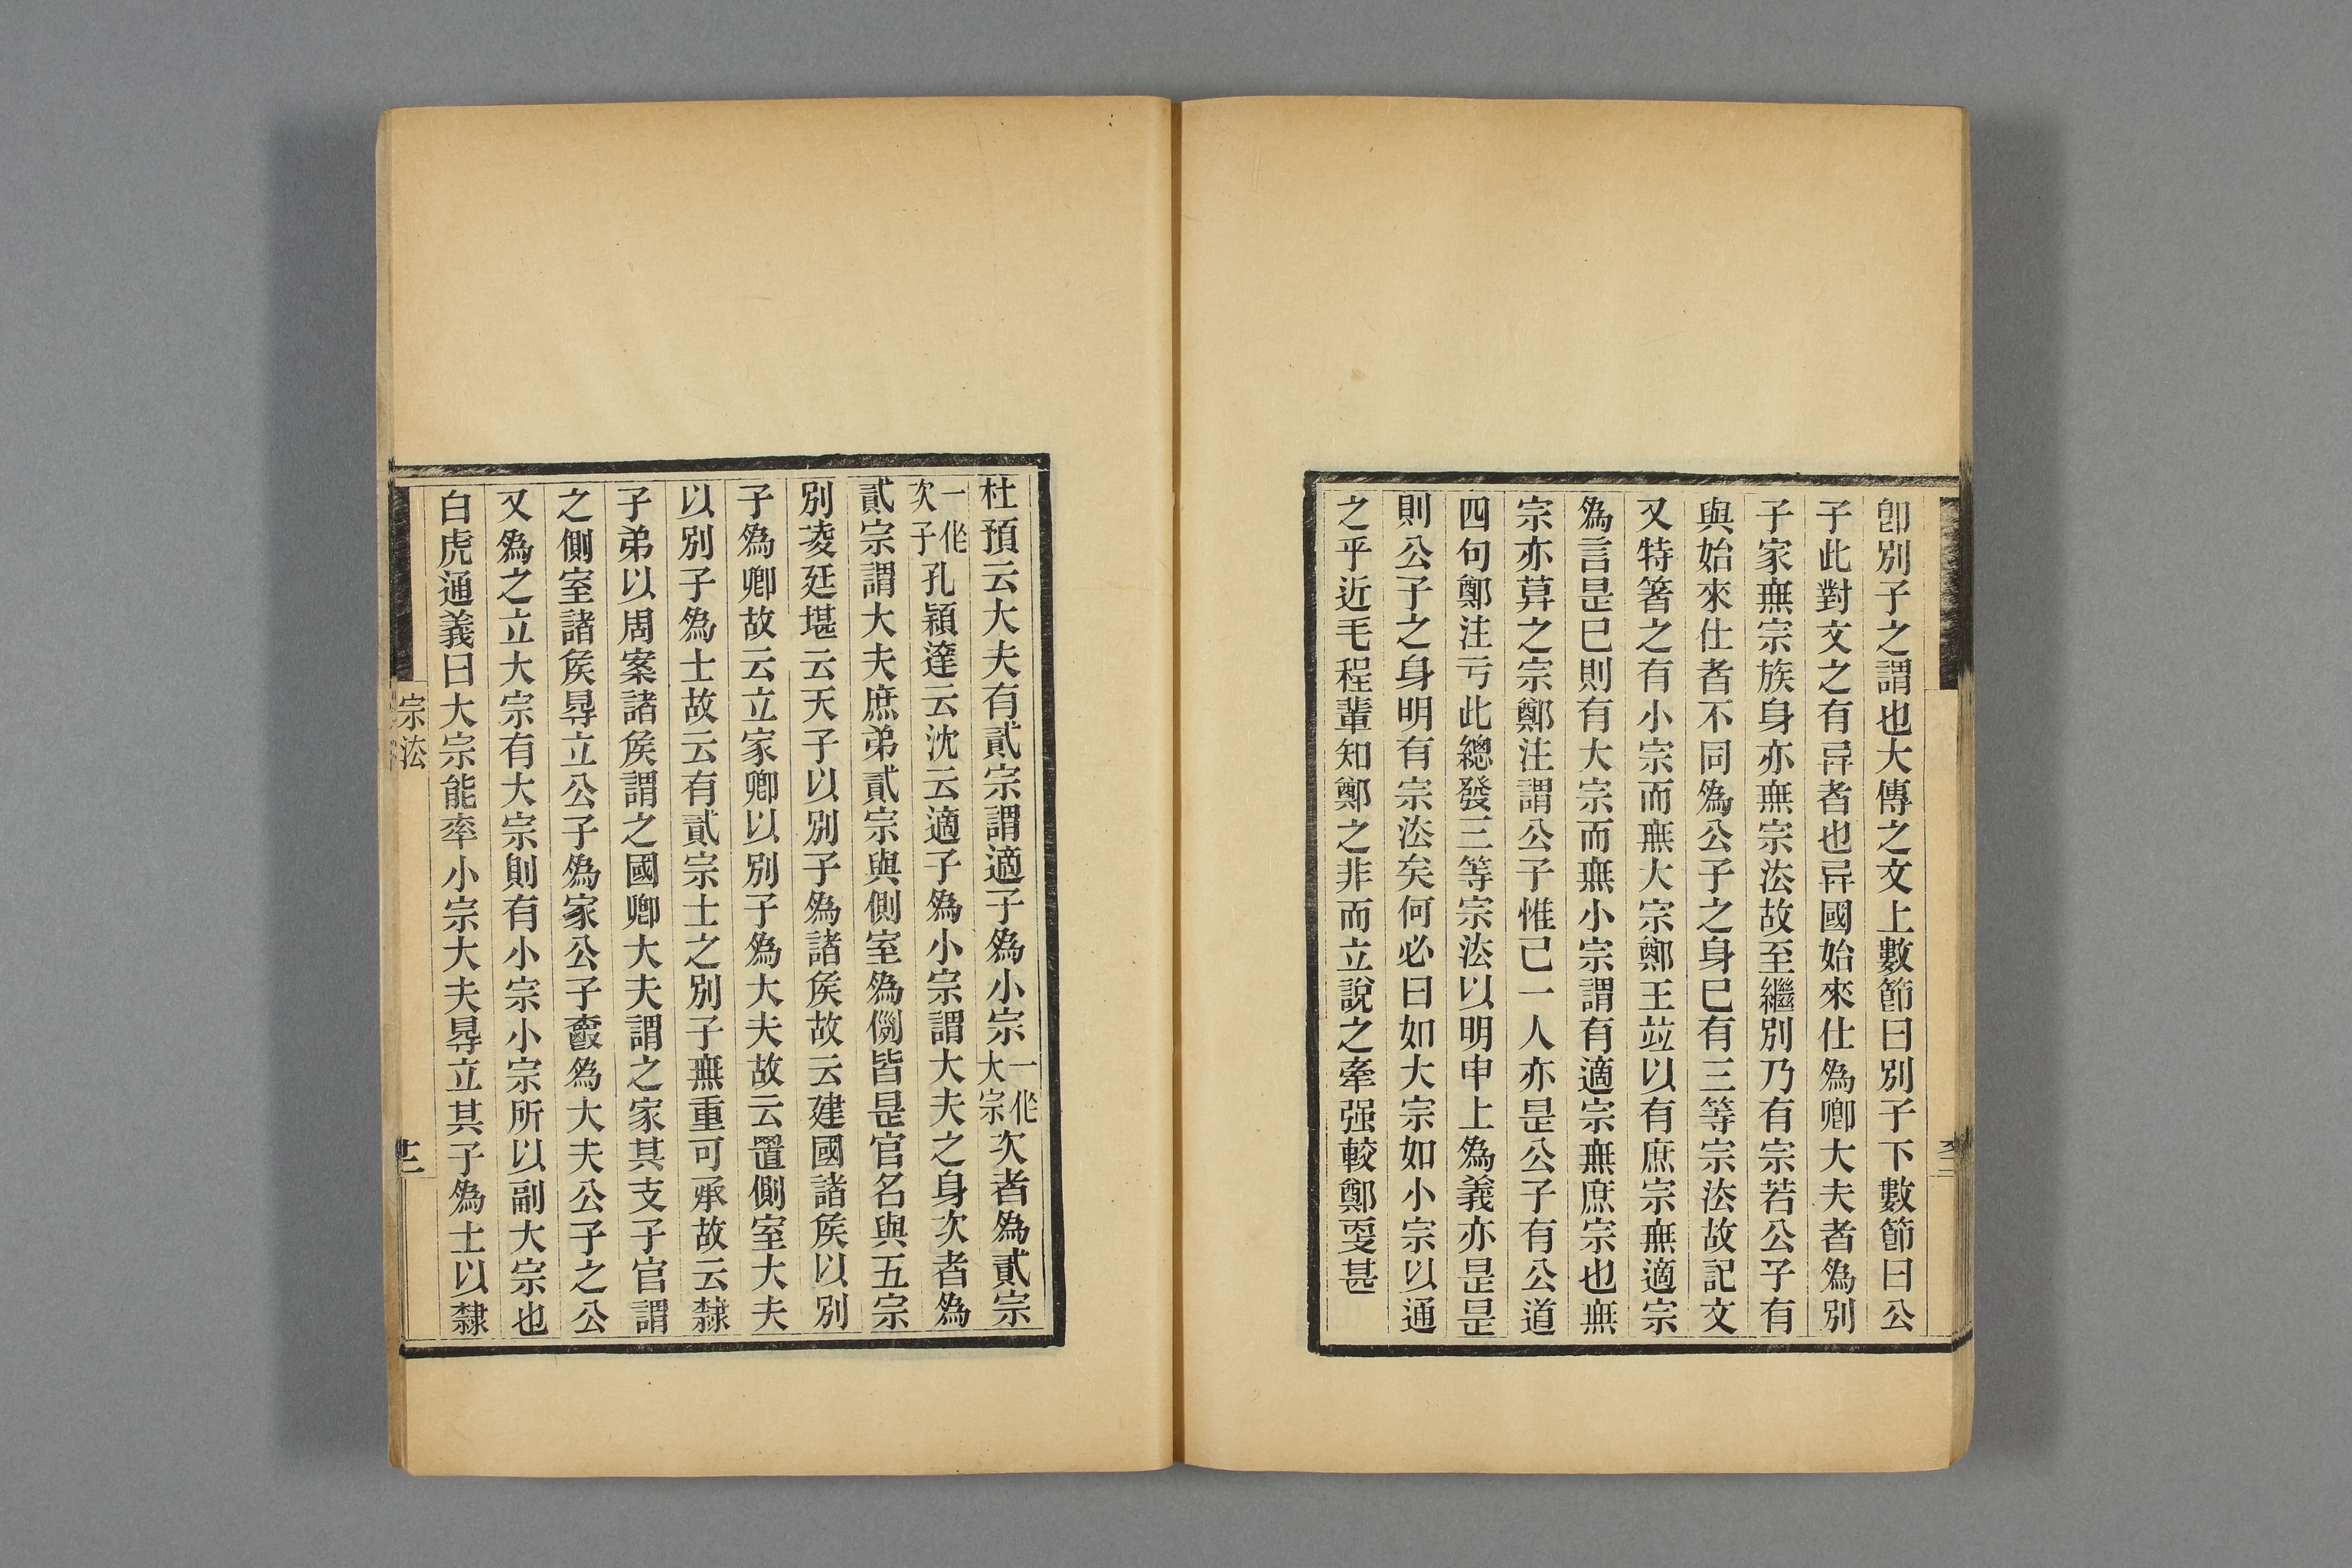 卽別子之謂也大傳之文上數節曰別子下數節曰公
子此對文之有异者也异國始來仕爲卿大夫者爲別
子家無宗族身亦無宗法故至繼別乃有宗若公子有
與始來仕者不同爲公子之身已有三等宗法故記文
又特箸之有小宗而無大宗鄭王竝以有庶宗無適宗
爲言是已則有大宗而無小宗謂有適宗無庶宗也無
宗亦莫之宗鄭注謂公子惟己一人亦是公子有公道
四句鄭注亏此總發三等宗法以明申上爲義亦是是
則公子之身明有宗法矣何必曰如大宗如小宗以通
之乎近毛程輩知鄭之非而立說之牽强較鄭叓甚
杜預云大夫有貳宗謂適子爲小宗一作大宗次者爲貳宗
一作次子孔穎達云沈云適子爲小宗謂大夫之身次者爲
貳宗謂大夫庶弟貳宗與側室爲㒋皆是官名與五宗
別凌廷堪云天子以別子爲諸侯故云建國諸侯以別
子爲卿故云立家卿以別子爲大夫故云置側室大夫
以別子爲士故云有貳宗士之別子無重可承故云隸
子弟以周案諸侯謂之國卿大夫謂之家其支子官謂
之側室諸侯㝵立公子爲家公子䨱爲大夫公子之公
又爲之立大宗有大宗則有小宗小宗所以副大宗也
白虎通義曰大宗能率小宗大夫㝵立其子爲士以隸
宗法
十二